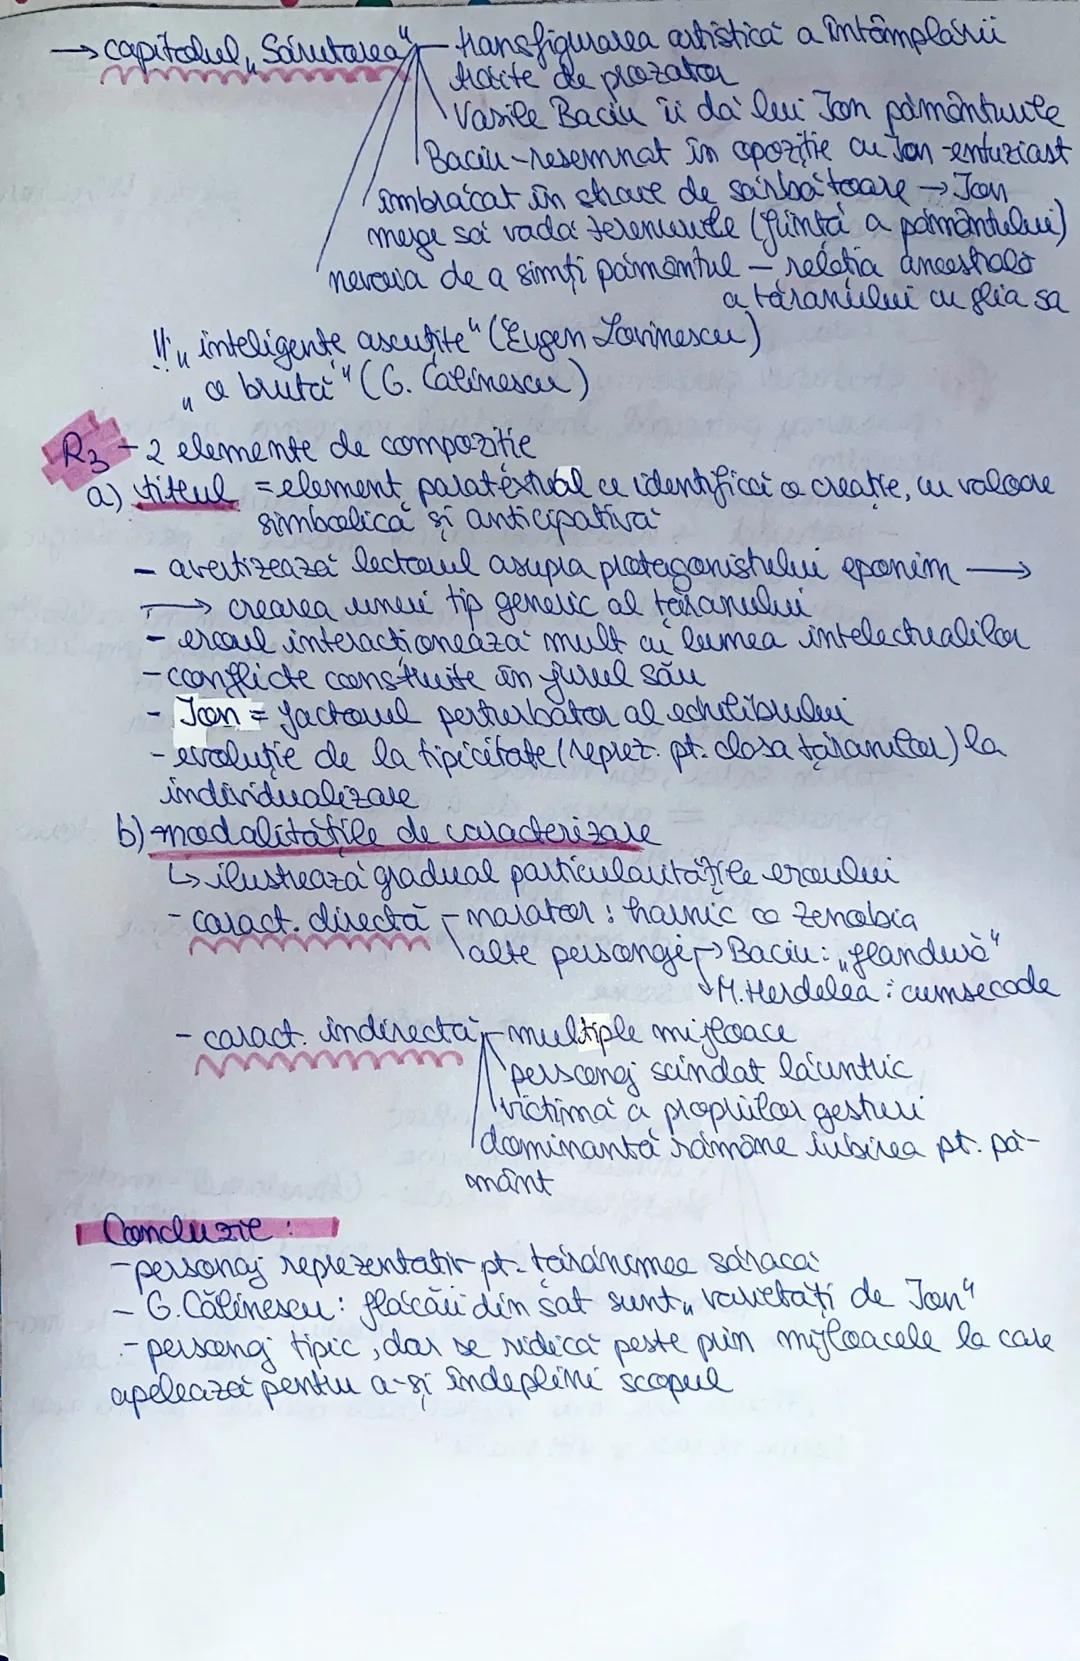 → capitolul „Sărutarea“ - transfigurarea artistică a întâmplării
trăite de prozator
Vasile Baciu îi dă lui Ion pământurile
Baciu-resemnat în opoziție cu Ion-entuziast
îmbrăcat în straie de sărbătoare → Ion
merge să vadă terenurile (ființă a pământului)
nevoia de a simți pământul - relația ancestrală
a țăranului cu glia sa
!!: „inteligențe ascuțite“ (Eugen Lovinescu)
„o brută“ (G. Călinescu)
R3 - 2 elemente de compoziție
a) titlul = element paratextual ce identifică o creație, cu valoare
simbolică și anticipativă
- avertizează lectorul asupra protagonistului eponim →
→ crearea unui tip generic al țăranului
- eroul interacționează mult cu lumea intelectualilor
- conflicte construite în jurul său
- Ion = factorul perturbator al echilibrului
- evoluție de la tipicitate (reprez. pt. clasa țăranilor) la
individualizare
b) modalitățile de caracterizare
↳ ilustrează gradual particularitățile eroului
- caract. directă - narator: harnic ca Zenobia
alte personaje → Baciu: „fleandură“
↓ M. Herdelea: cumsecade
- caract. indirectă - multiple mijloace
personaj scindat lăuntric
victimă a propriilor gesturi
dominantă rămâne iubirea pt. pă-
mânt
Concluzie:
- personaj reprezentativ pt. țărănimea săracă
- G. Călinescu: flăcăii din sat sunt „varietăți de Ion“
- personaj tipic, dar se ridică peste prin mijloacele la care
apelează pentru a-și îndeplini scopul